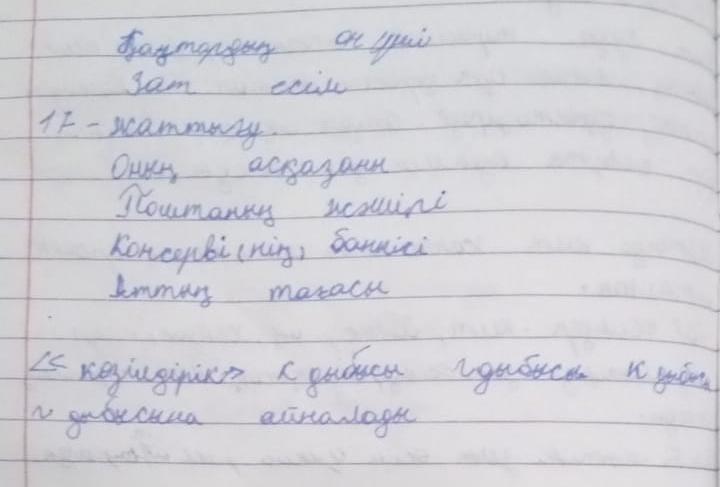 Қаңтардың он үші
Зат есім
17 - жаттығу.
Оның асқазаны
Поштаның жәшігі
Консерві(нің) банкісі
Аттың тағасы
<< көзілдірік>> к дыбысы г дыбысы к дыбысы
г дыбысына айналады